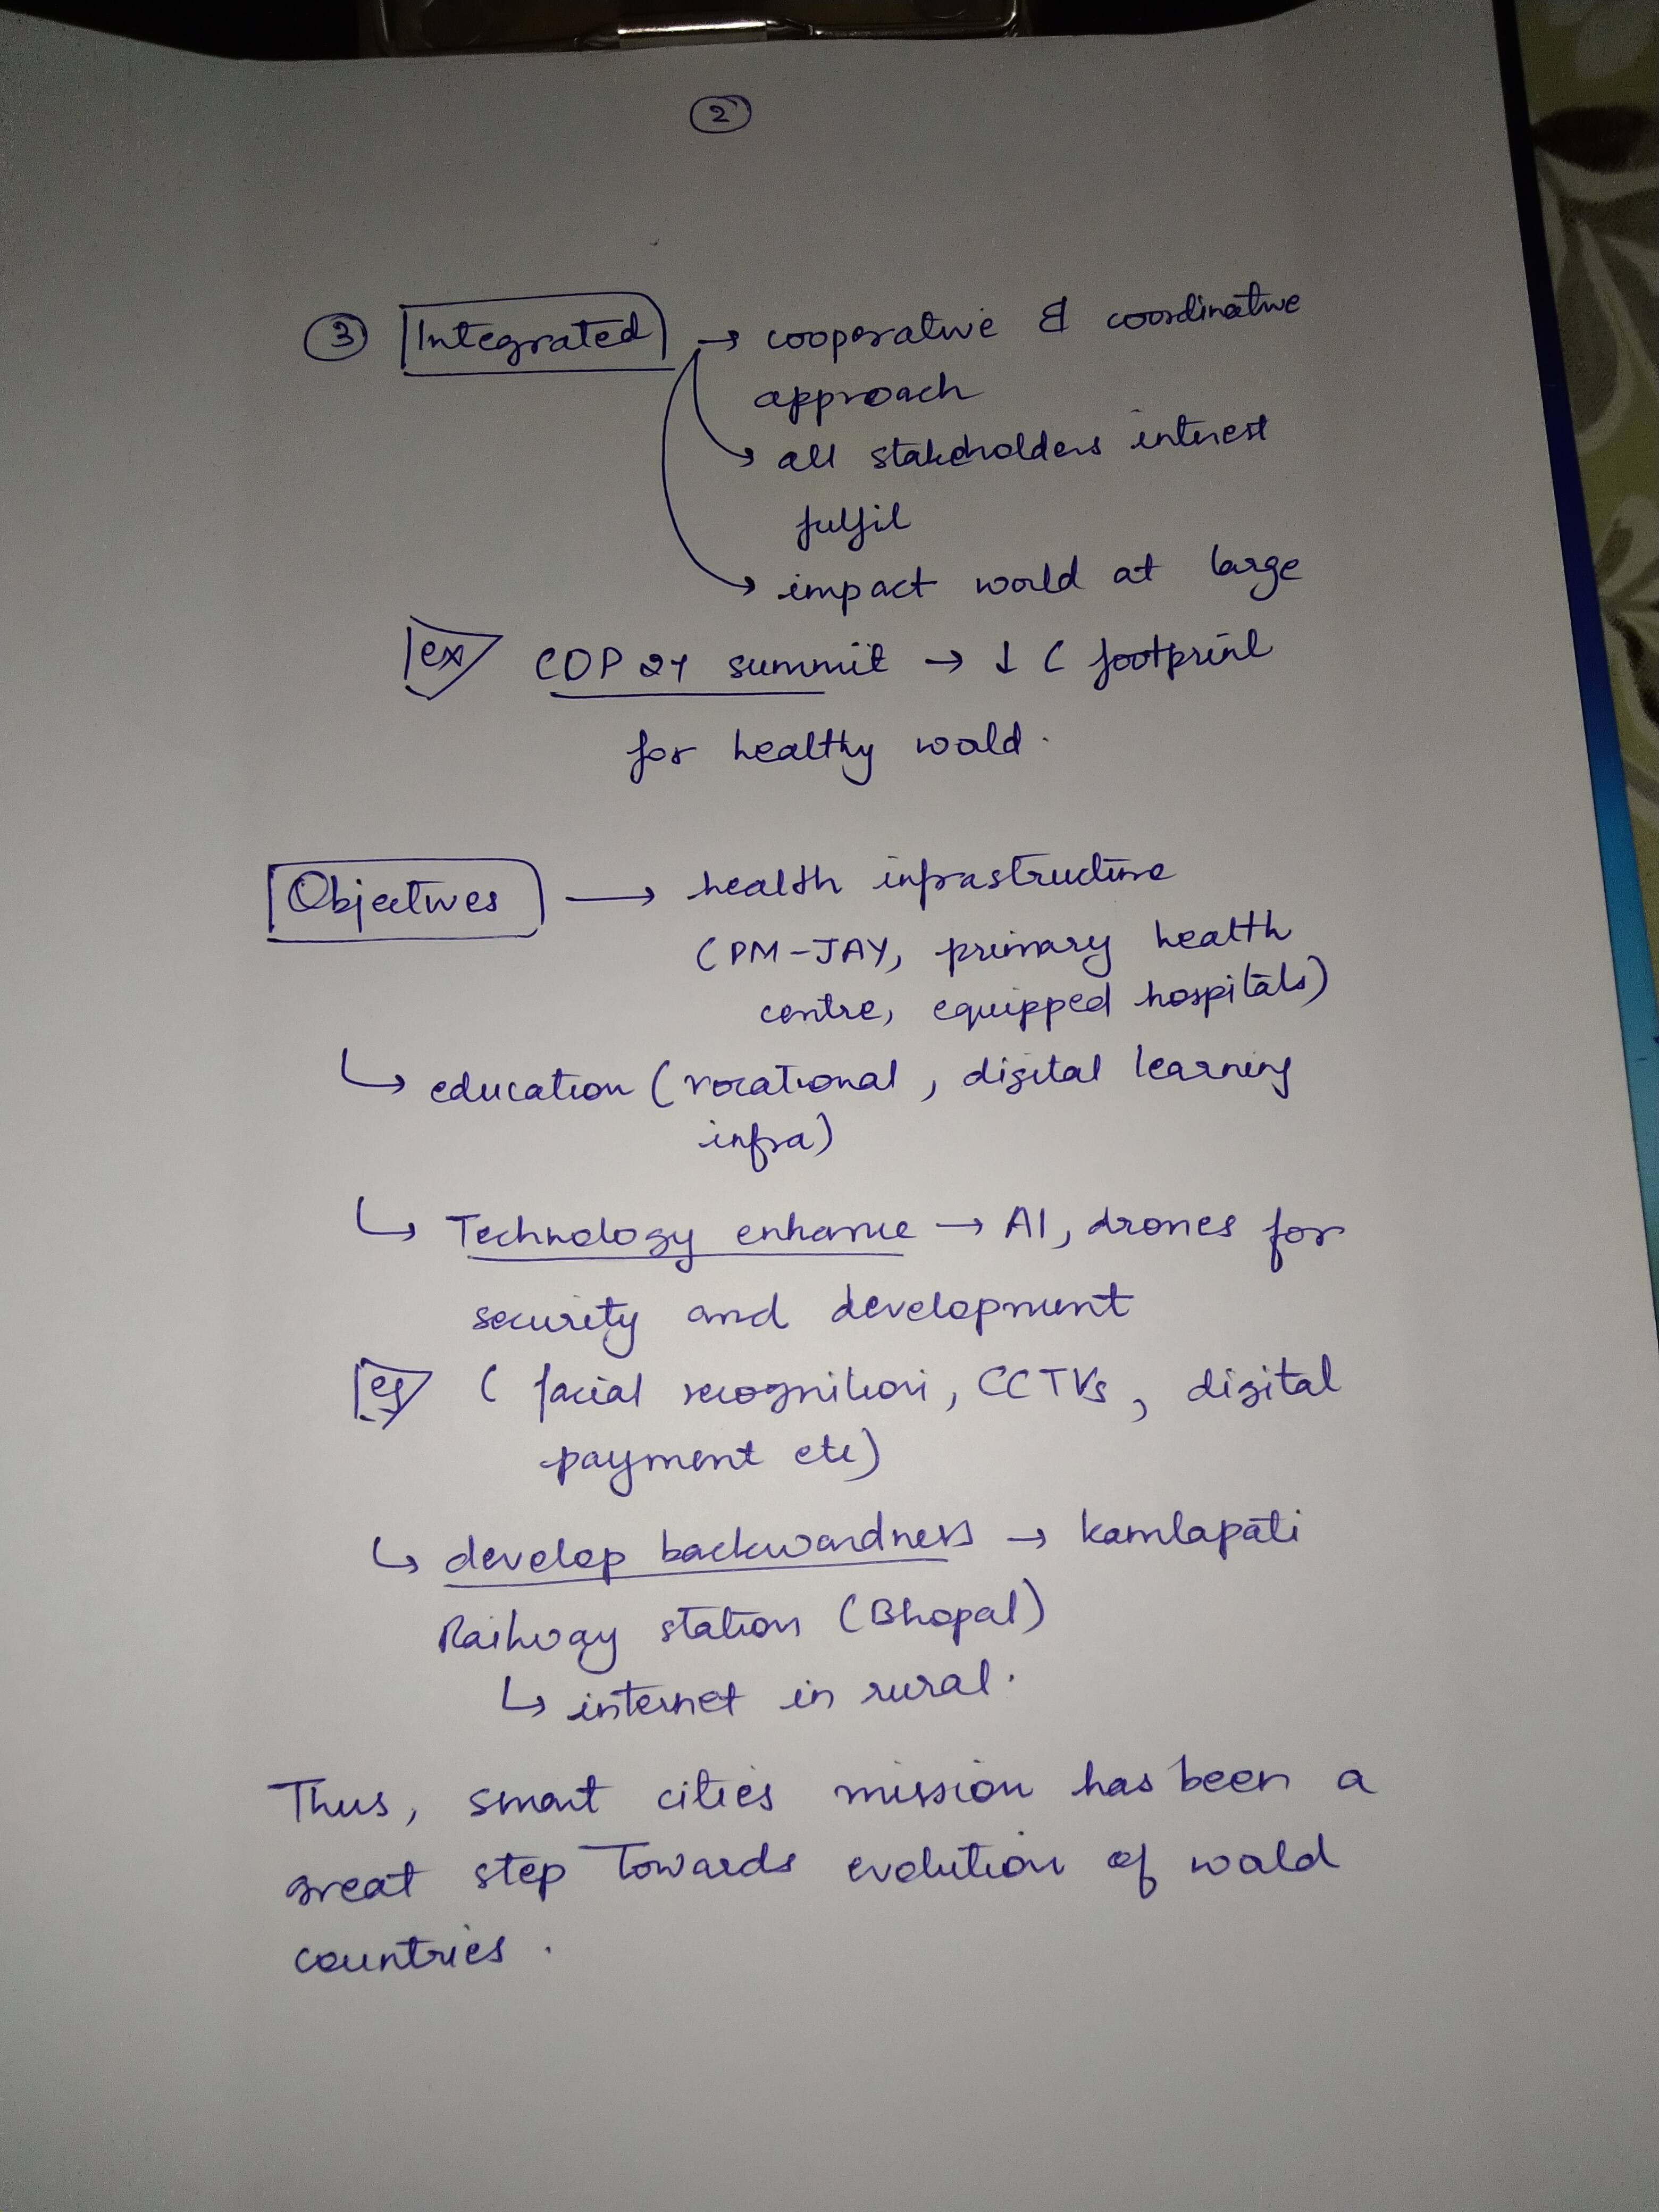 2
3 Integrated → cooperative & coordinative
approach
→ all stakeholders interest
fulfil
→ impact world at large
ex COP 21 summit → ↓ C footprint
for healthy world.
Objectives → health infrastructure
(PM-JAY, primary health
centre, equipped hospitals)
↳ education (vocational, digital learning
infra)
↳ Technology enhance → AI, drones for
security and development
eg ( facial recognition, CCTVs, digital
payment etc)
↳ develop backwardness → kamlapati
Railway station (Bhopal)
↳ internet in rural.
Thus, smart cities mission has been a
great step towards evolution of world
countries.